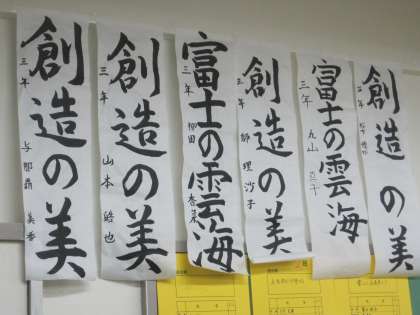 創造の美
三年 与那覇 美香
創造の美
三年 山本 皓也
富士の雲海
三年 柳田 香菜
創造の美
三年 柳 理沙子
富士の雲海
三年 丸山
創造の美
三年